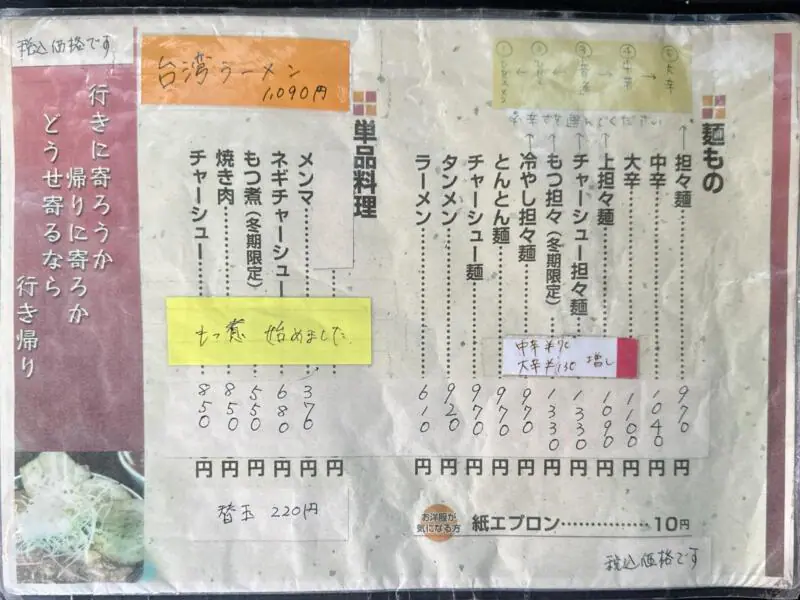 麺もの
担々麺 970円
中辛 1040円
大辛 1100円
上担々麺 1090円
チャーシュー担々麺 1330円
もつ担々(冬期限定) 1330円
冷やし担々麺 970円
とんとん麺 970円
チャーシュー麺 970円
タンメン 920円
ラーメン 610円
中辛¥70
大辛¥130 増し
お洋服が
気になる方
紙エプロン 10円
税込価格です
単品料理
円
メンマ 370円
ネギチャーシュー 680円
もつ煮(冬期限定) 550円
焼き肉 850円
チャーシュー 850円
台湾ラーメン
1,090円
もつ煮 始めました
替玉 220円
税込価格です
行きに寄ろうか
帰りに寄ろか
どうせ寄るなら
行き帰り